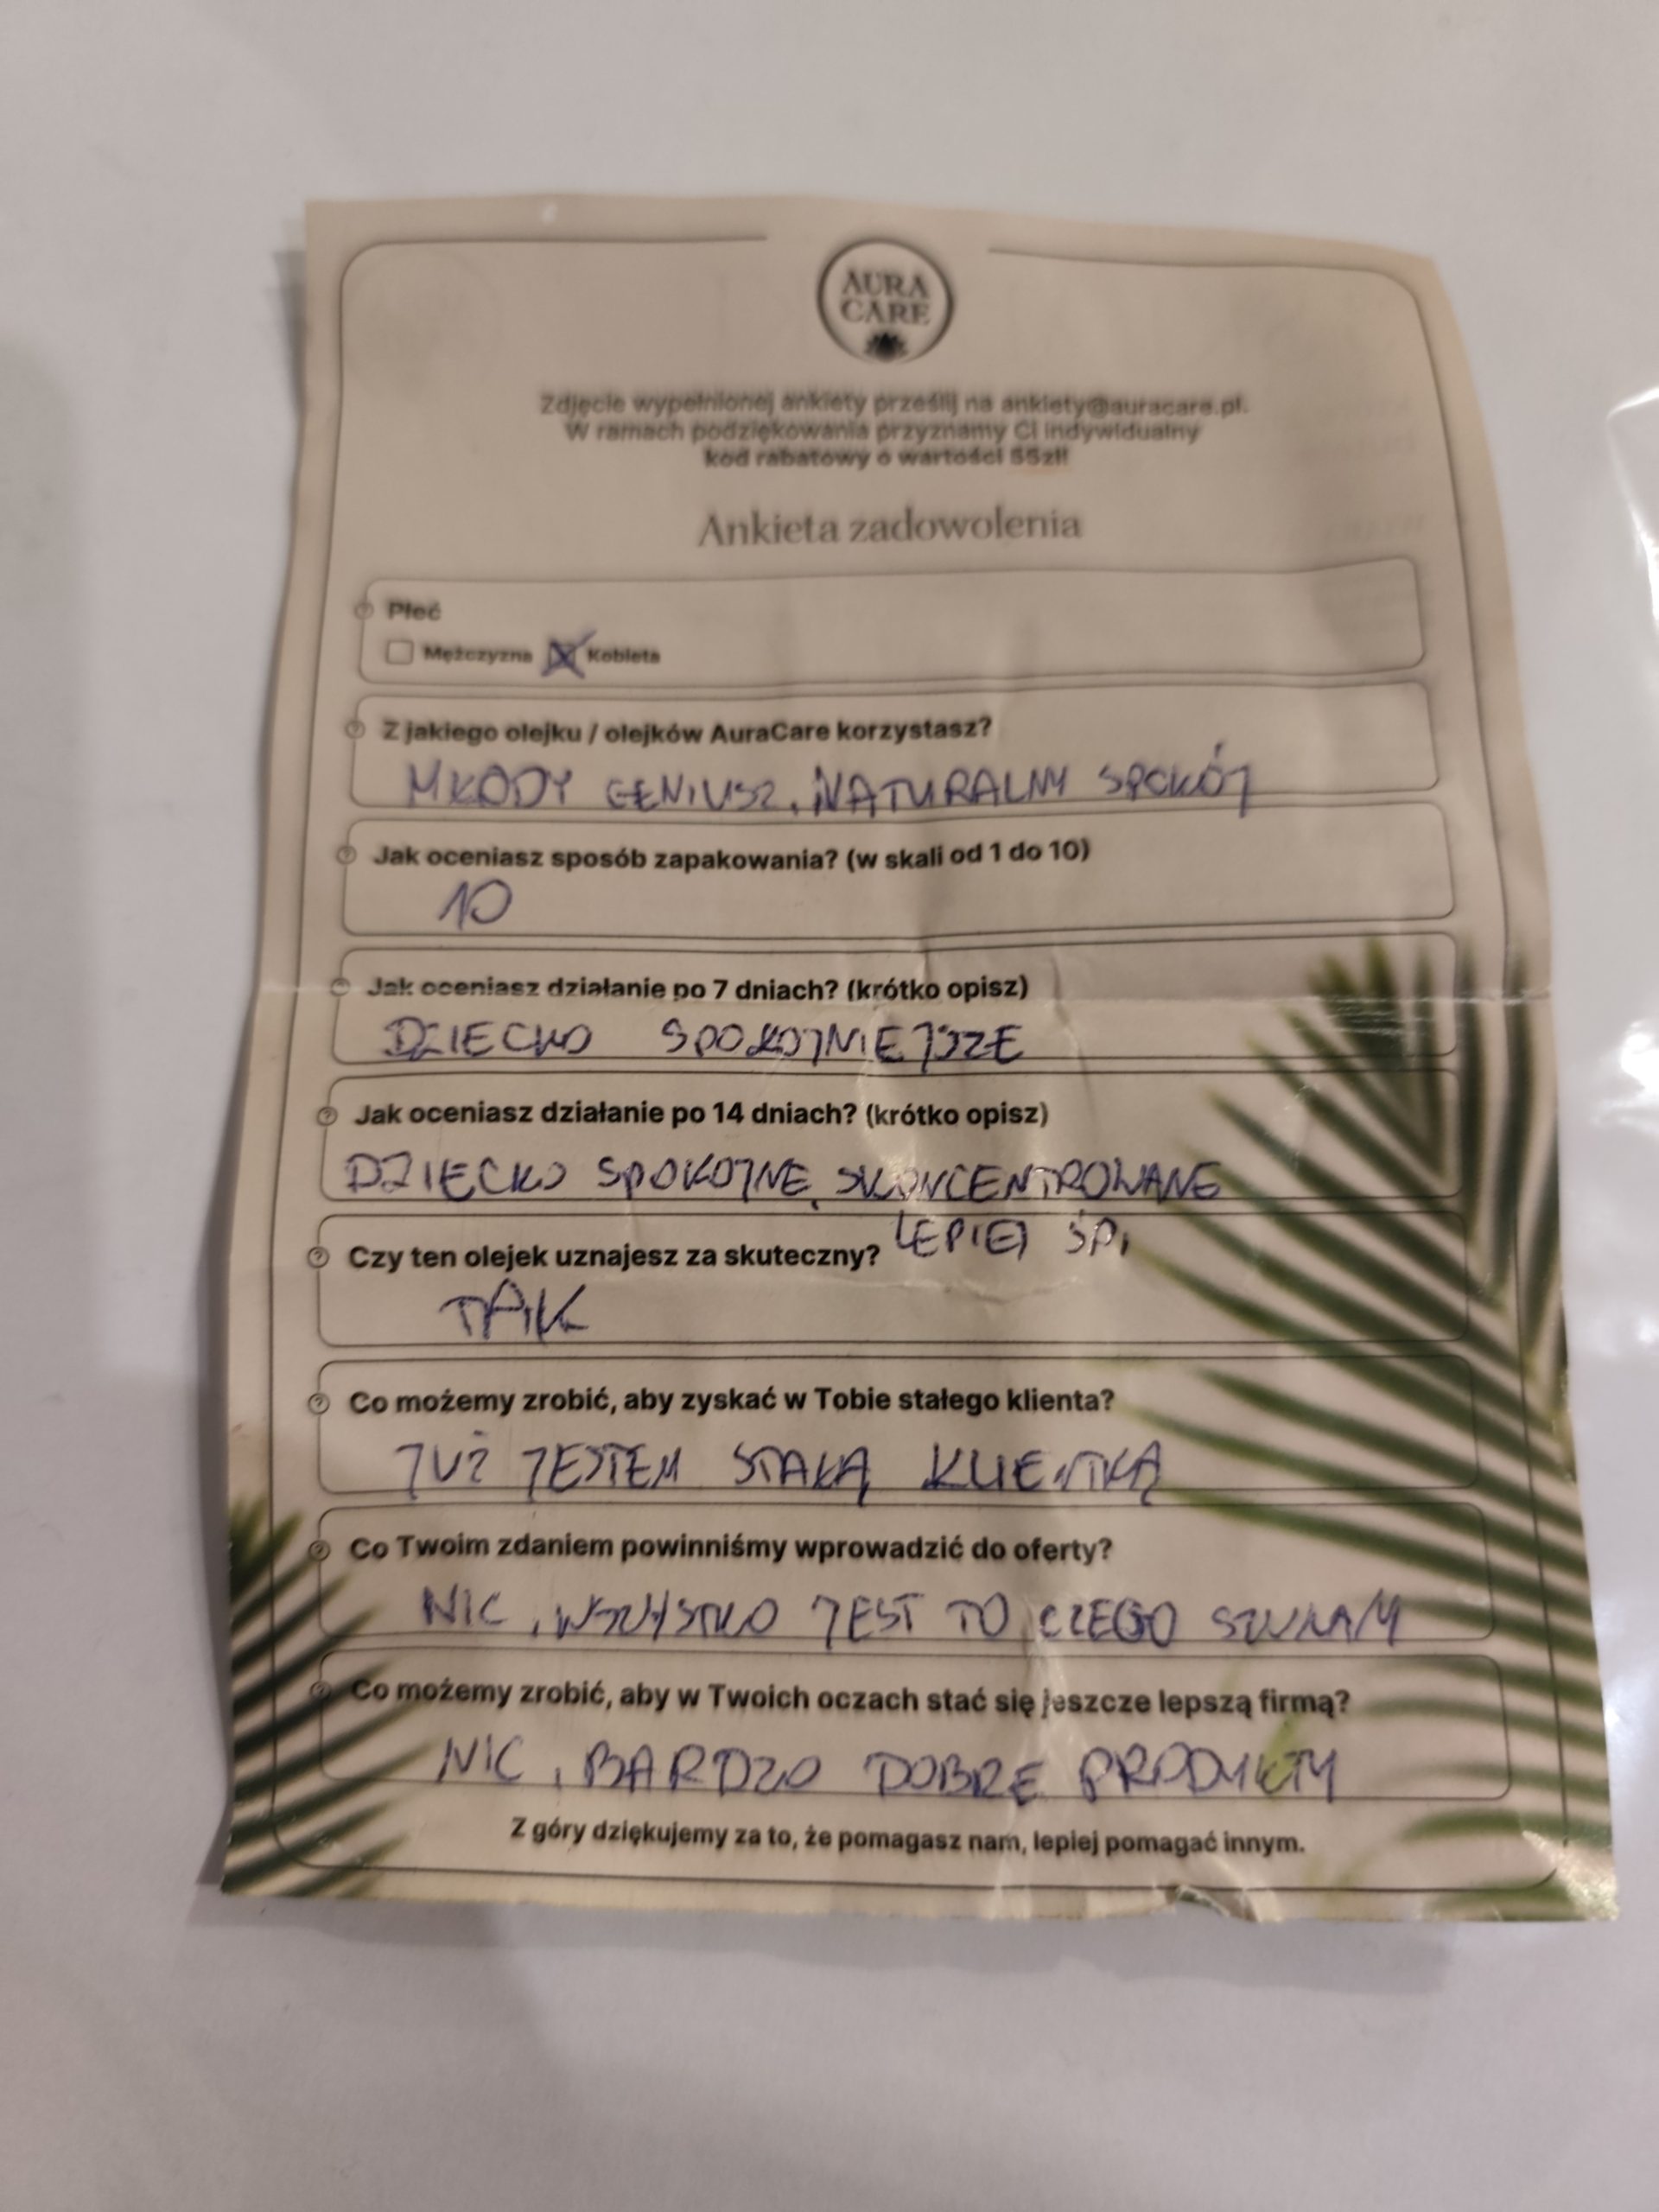 AURA
CARE
Zdjęcie wypełnionej ankiety prześlij na ankiety@auracare.pl.
W ramach podziękowania przyznamy Ci indywidualny
kod rabatowy o wartości 55zł!
Ankieta zadowolenia
Płeć
Mężczyzna Kobieta
Z jakiego olejku / olejków AuraCare korzystasz?
MŁODY GENIUSZ, NATURALNY SPOKÓJ
Jak oceniasz sposób zapakowania? (w skali od 1 do 10)
10
Jak oceniasz działanie po 7 dniach? (krótko opisz)
DZIECKO SPOKOJNIEJSZE
Jak oceniasz działanie po 14 dniach? (krótko opisz)
DZIECKO SPOKOJNE, SKONCENTROWANE
LEPIEJ ŚPI
Czy ten olejek uznajesz za skuteczny?
TAK
Co możemy zrobić, aby zyskać w Tobie stałego klienta?
JUŻ JESTEM STAŁĄ KLIENTKĄ
Co Twoim zdaniem powinniśmy wprowadzić do oferty?
NIC, WSZYSTKO JEST TO CZEGO SZUKAM
Co możemy zrobić, aby w Twoich oczach stać się jeszcze lepszą firmą?
NIC, BARDZO DOBRE PRODUKTY
Z góry dziękujemy za to, że pomagasz nam, lepiej pomagać innym.